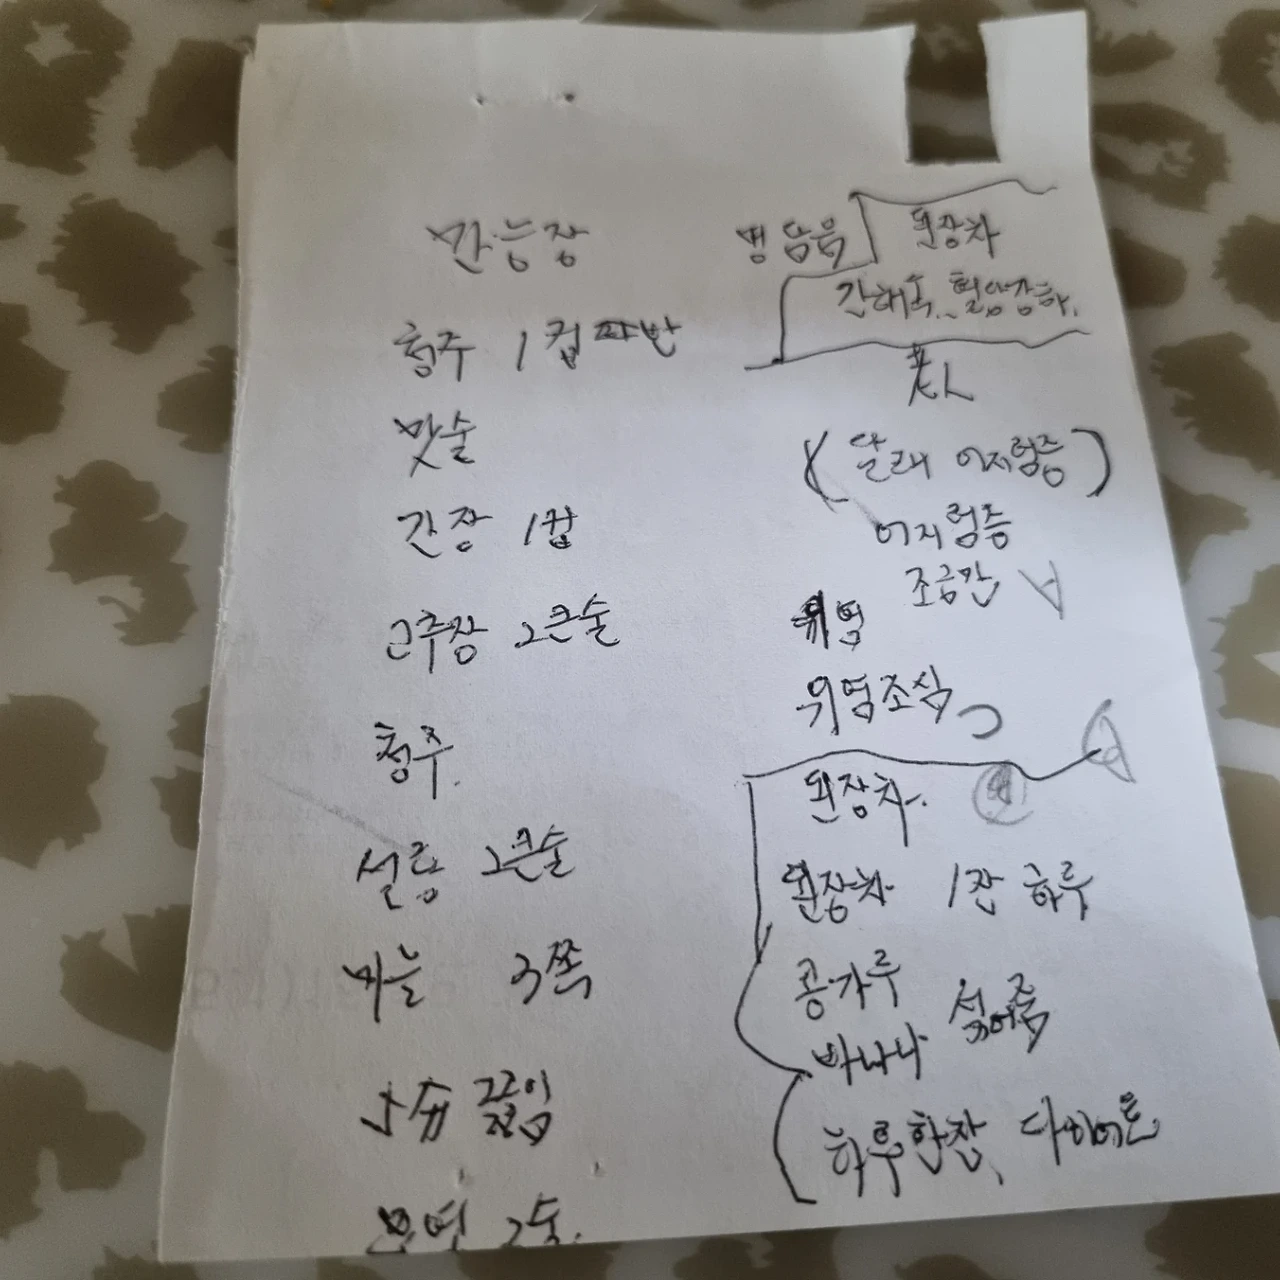 만능장
청주 1컵 과반
맛술
간장 1컵
고추장 2큰술
청주
설탕 2큰술
마늘 3쪽
끓임
2술
된장차
간해독. 혈압강하.
老人
(달래 어지럼증)
어지럼증
조금만
위염
위염조심
된장차.
된장차 1잔 하루
콩가루
바나나 섞어줌
하루한잔, 다이어트